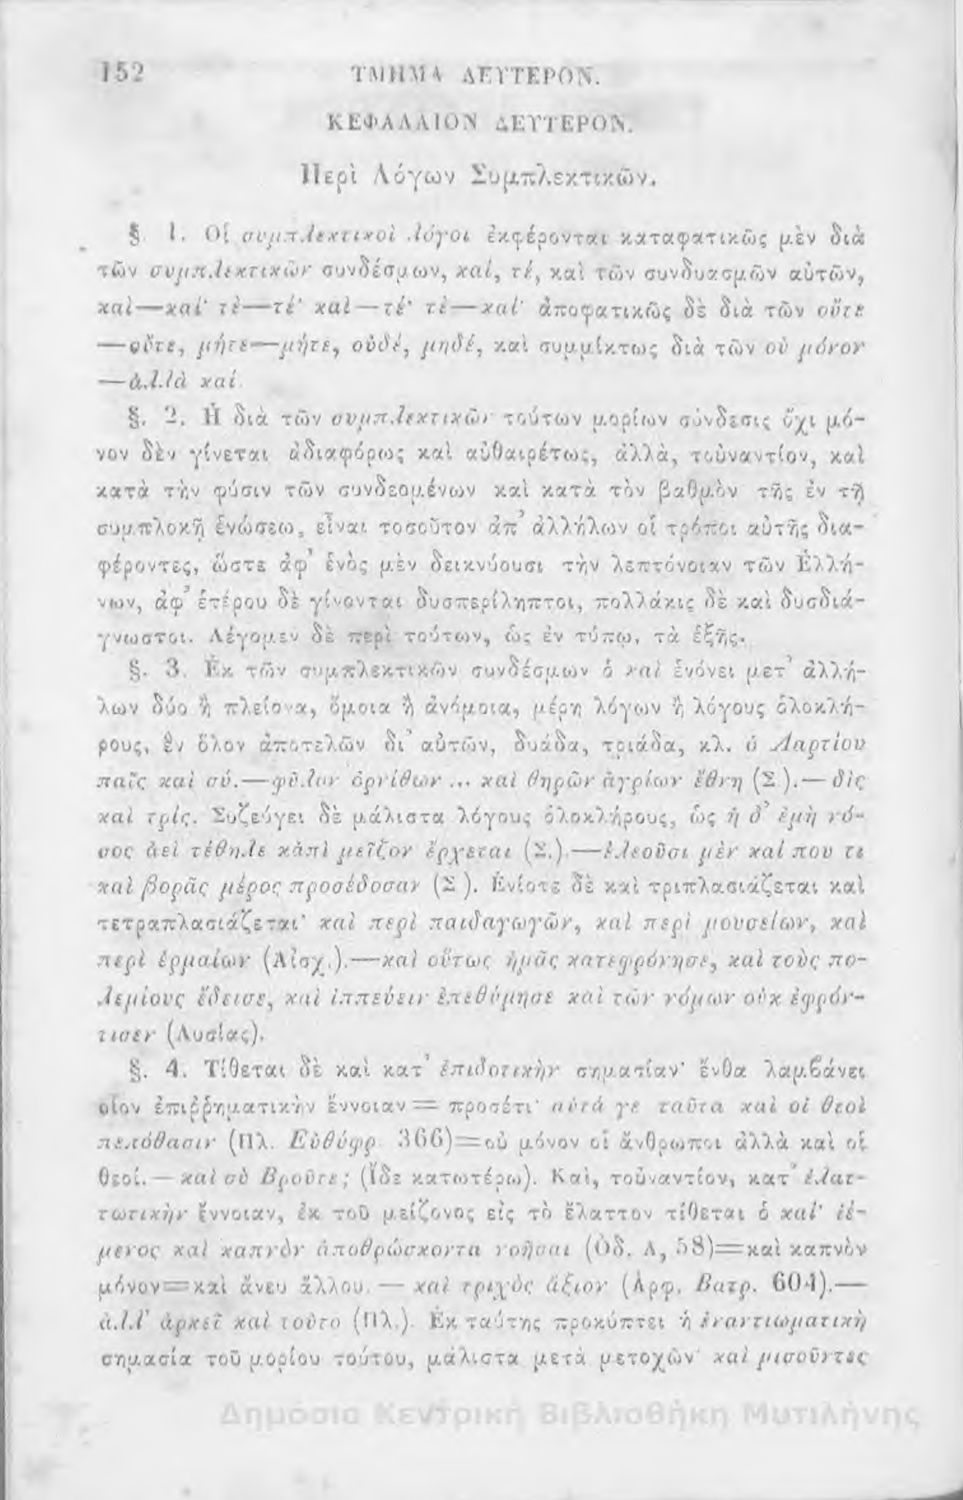 152 ΤΜΗΜΑ ΔΕΥΤΕΡΟΝ.
ΚΕΦΑΛΑΙΟΝ ΔΕΥΤΕΡΟΝ.
Περὶ Λόγων Συμπλεκτικῶν.
§ 1. Οἱ συμπλεκτικοὶ λόγοι ἐκφέρονται καταφατικῶς μὲν διὰ
τῶν συμπλεκτικῶν συνδέσμων, καί, τέ, καὶ τῶν συνδυασμῶν αὐτῶν,
καὶ—καί· τὲ—τέ· καὶ—τέ· τὲ—καί· ἀποφατικῶς δὲ διὰ τῶν οὔτε
—οὔτε, μήτε—μήτε, οὐδέ, μηδέ, καὶ συμμίκτως διὰ τῶν οὐ μόνον
—ἀλλὰ καί.
§. 2. Ἡ διὰ τῶν συμπλεκτικῶν τούτων μορίων σύνδεσις ὄχι μό-
νον δὲν γίνεται ἀδιαφόρως καὶ αὐθαιρέτως, ἀλλὰ, τοὐναντίον, καὶ
κατὰ τὴν φύσιν τῶν συνδεομένων καὶ κατὰ τὸν βαθμὸν τῆς ἐν τῇ
συμπλοκῇ ἑνώσεως, εἶναι τοσοῦτον ἀπ' ἀλλήλων οἱ τρόποι αὐτῆς δια-
φέροντες, ὥστε ἀφ' ἑνὸς μὲν δεικνύουσι τὴν λεπτόνοιαν τῶν Ἑλλή-
νων, ἀφ' ἑτέρου δὲ γίνονται δυσπερίληπτοι, πολλάκις δὲ καὶ δυσδιά-
γνωστοι. Λέγομεν δὲ περὶ τούτων, ὡς ἐν τύπῳ, τὰ ἑξῆς.
§. 3. Ἐκ τῶν συμπλεκτικῶν συνδέσμων ὁ καὶ ἑνόνει μετ' ἀλλή-
λων δύο ἢ πλείονα, ὅμοια ἢ ἀνόμοια, μέρη λόγων ἢ λόγους ὁλοκλή-
ρους, ἓν ὅλον ἀποτελῶν δι' αὐτῶν, δυάδα, τριάδα, κλ. ὁ Λαρτίου
παῖς καὶ σύ.—φῦλον ὀρνίθων ... καὶ θηρῶν ἀγρίων ἔθνη (Σ.).—δὶς
καὶ τρίς. Συζεύγει δὲ μάλιστα λόγους ὁλοκλήρους, ὡς ἡ δ' ἐμὴ νό-
σος ἀεὶ τέθηλε κἀπὶ μεῖζον ἔρχεται (Σ.).—ἐλεοῦσι μὲν καί που τι
καὶ βορᾶς μέρος προσέδοσαν (Σ.). Ἐνίοτε δὲ καὶ τριπλασιάζεται καὶ
τετραπλασιάζεται· καὶ περὶ παιδαγωγῶν, καὶ περὶ μουσείων, καὶ
περὶ ἑρμαίων (Αἰσχ.).—καὶ οὕτως ἡμᾶς κατεφρόνησε, καὶ τοὺς πο-
λεμίους ἔδεισε, καὶ ἱππεύειν ἐπεθύμησε καὶ τῶν νόμων οὐκ ἐφρόν-
τισεν (Λυσίας).
§. 4. Τίθεται δὲ καὶ κατ' ἐπιδοτικὴν σημασίαν· ἔνθα λαμβάνει
οἷον ἐπιῤῥηματικὴν ἔννοιαν = προσέτι· αὐτά γε ταῦτα καὶ οἱ θεοὶ
πεπόθασιν (Πλ. Εὐθύφρ. 366)=οὐ μόνον οἱ ἄνθρωποι ἀλλὰ καὶ οἱ
θεοί.—καὶ σὺ Βροῦτε; (ἴδε κατωτέρω). Καὶ, τοὐναντίον, κατ' ἐλατ-
τωτικὴν ἔννοιαν, ἐκ τοῦ μείζονος εἰς τὸ ἔλαττον τίθεται ὁ καί· ἱέ-
μενος καὶ καπνὸν ἀποθρώσκοντα νοῆσαι (Ὀδ. Α, 58)=καὶ καπνὸν
μόνον=καὶ ἄνευ ἄλλου.—καὶ τριχὸς ἄξιον (Ἀρφ. Βατρ. 604).—
ἀλλ' ἀρκεῖ καὶ τοῦτο (Πλ.). Ἐκ ταύτης προκύπτει ἡ ἐναντιωματικὴ
σημασία τοῦ μορίου τούτου, μάλιστα μετὰ μετοχῶν· καὶ μισοῦντες
Δημόσια Κεντρική Βιβλιοθήκη Μυτιλήνης